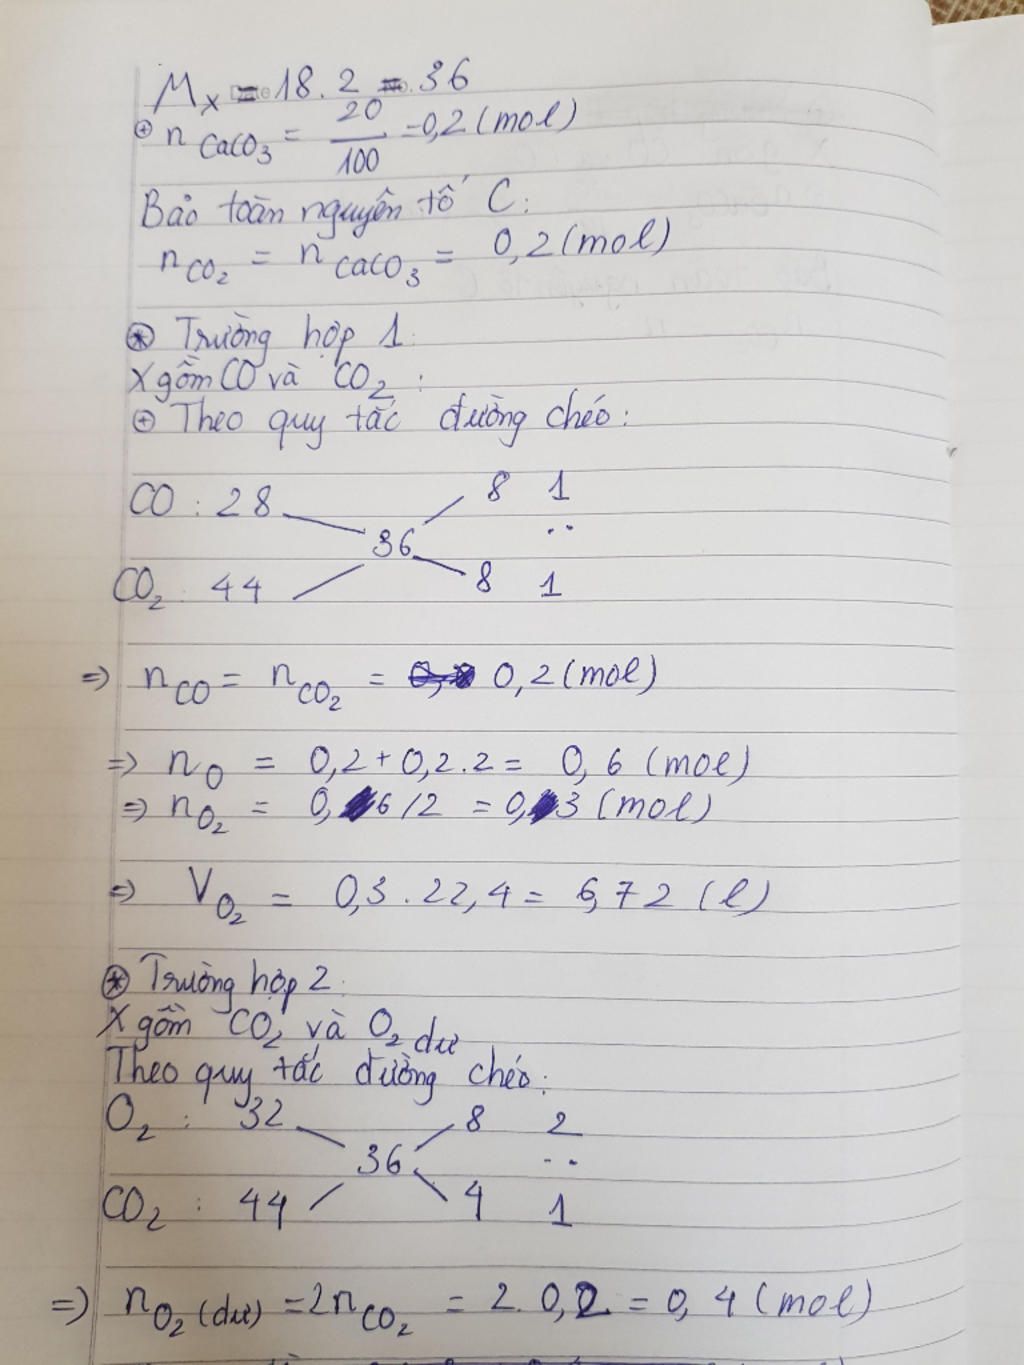 M_X = 18.2 = 36
⊕ n_CaCO₃ = 20/100 = 0,2 (mol)
Bảo toàn nguyên tố C:
n_CO₂ = n_CaCO₃ = 0,2 (mol)
⊛ Trường hợp 1:
X gồm CO và CO₂ :
⊕ Theo quy tắc đường chéo:
CO : 28 8 1
36 ..
CO₂ : 44 8 1
=> n_CO = n_CO₂ = 0,2 (mol)
=> n_O = 0,2 + 0,2.2 = 0,6 (mol)
=> n_O₂ = 0,6/2 = 0,3 (mol)
=> V_O₂ = 0,3.22,4 = 6,72 (l)
⊛ Trường hợp 2:
X gồm CO₂ và O₂ dư
Theo quy tắc đường chéo:
O₂ : 32 8 2
36 ..
CO₂ : 44 4 1
=> n_O₂ (dư) = 2n_CO₂ = 2.0,2 = 0,4 (mol)